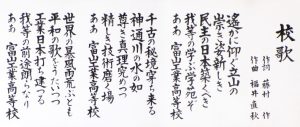 校歌
作詞 藤村 作
作曲 福井 直秋
遙かに仰ぐ立山の
崇き姿か新しき
民主の日本築くべき
我等の学ぶ学び苑ぞ
ああ 富山工業高等学校
千古の秘境穿ち来る
神通川の水の如
尊き真理究めつつ
精しき技術磨く場
ああ 富山工業高等学校
世界の暴風雨荒ぶとも
平和の歌をうたいつつ
工業日本打ち建つる
我等の前途朗らなり
ああ 富山工業高等学校